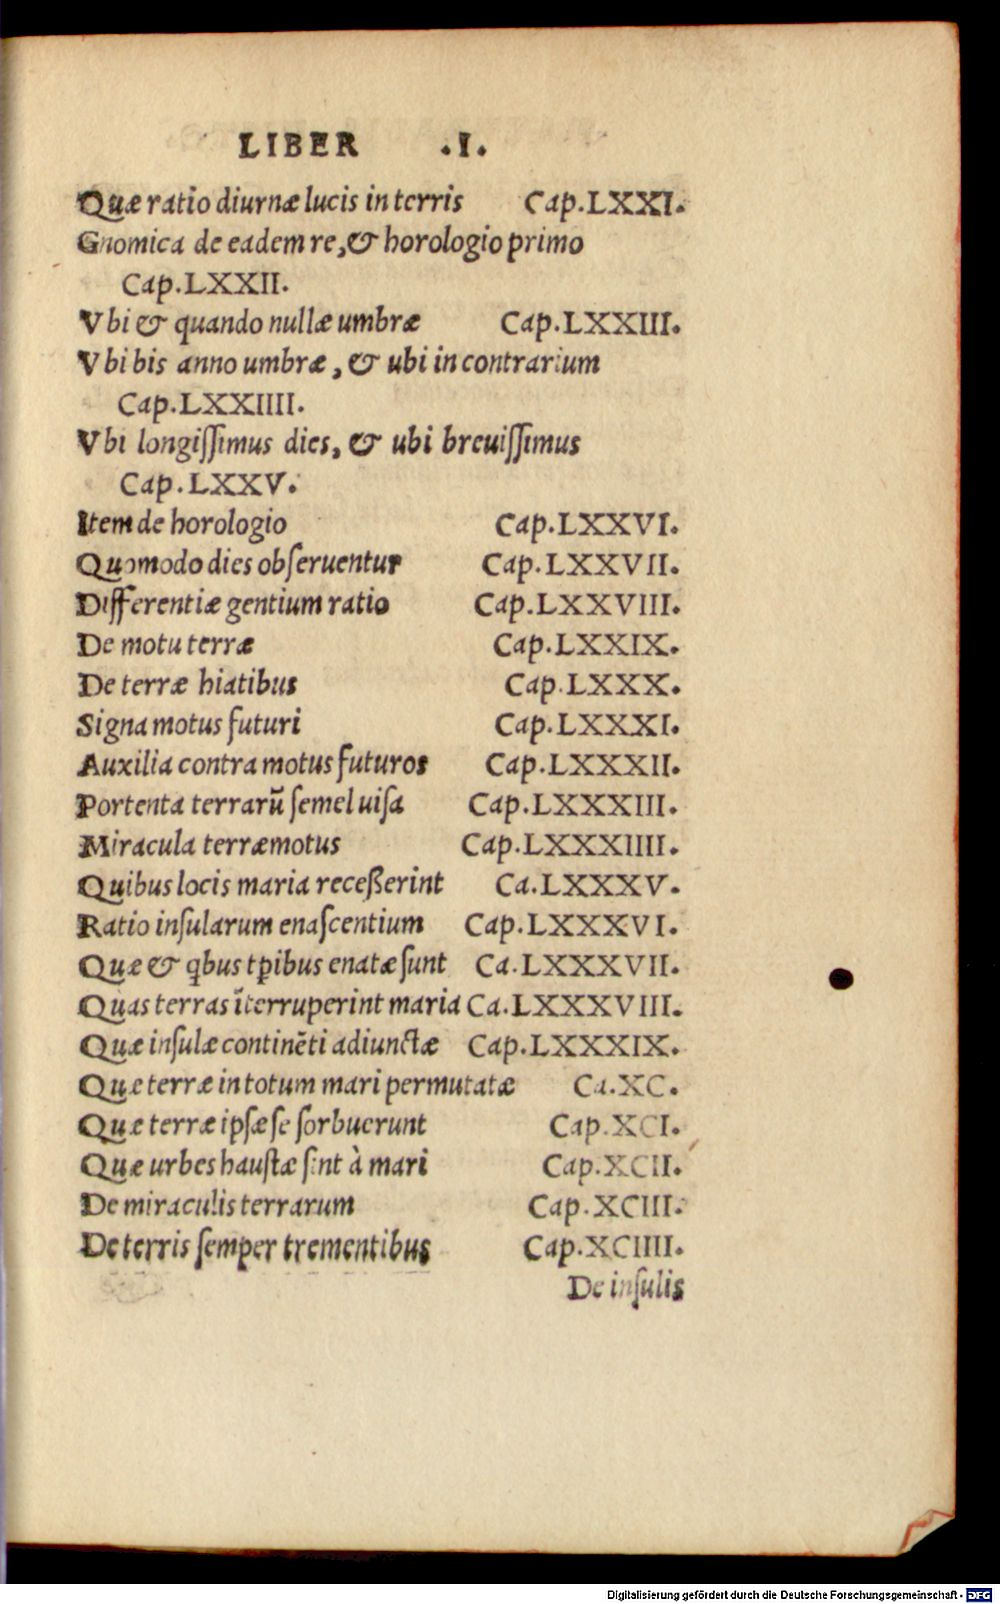 LIBER .I.
Quæ ratio diurnæ lucis in terris Cap.LXXI.
Gnomica de eadem re,& horologio primo
Cap.LXXII.
Vbi & quando nullæ umbræ Cap.LXXIII.
Vbi bis anno umbræ, & ubi in contrarium
Cap.LXXIIII.
Vbi longiſſimus dies, & ubi breuiſſimus
Cap.LXXV.
Item de horologio Cap.LXXVI.
Quomodo dies obſeruentur Cap.LXXVII.
Differentiæ gentium ratio Cap.LXXVIII.
De motu terræ Cap.LXXIX.
De terræ hiatibus Cap.LXXX.
Signa motus futuri Cap.LXXXI.
Auxilia contra motus futuros Cap.LXXXII.
Portenta terrarū ſemel uiſa Cap.LXXXIII.
Miracula terræmotus Cap.LXXXIIII.
Quibus locis maria receßerint Ca.LXXXV.
Ratio inſularum enaſcentium Cap.LXXXVI.
Quæ & qbus tꝑibus enatæ ſunt Ca.LXXXVII.
Quas terras īterruperint maria Ca.LXXXVIII.
Quæ inſulæ continēti adiunctæ Cap.LXXXIX.
Quæ terræ in totum mari permutatæ Ca.XC.
Quæ terræ ipſæ ſe ſorbuerunt Cap.XCI.
Quæ urbes hauſtæ ſint à mari Cap.XCII.
De miraculis terrarum Cap.XCIII.
De terris ſemper trementibus Cap.XCIIII.
De inſulis
Digitalisierung gefördert durch die Deutsche Forschungsgemeinschaft - DFG